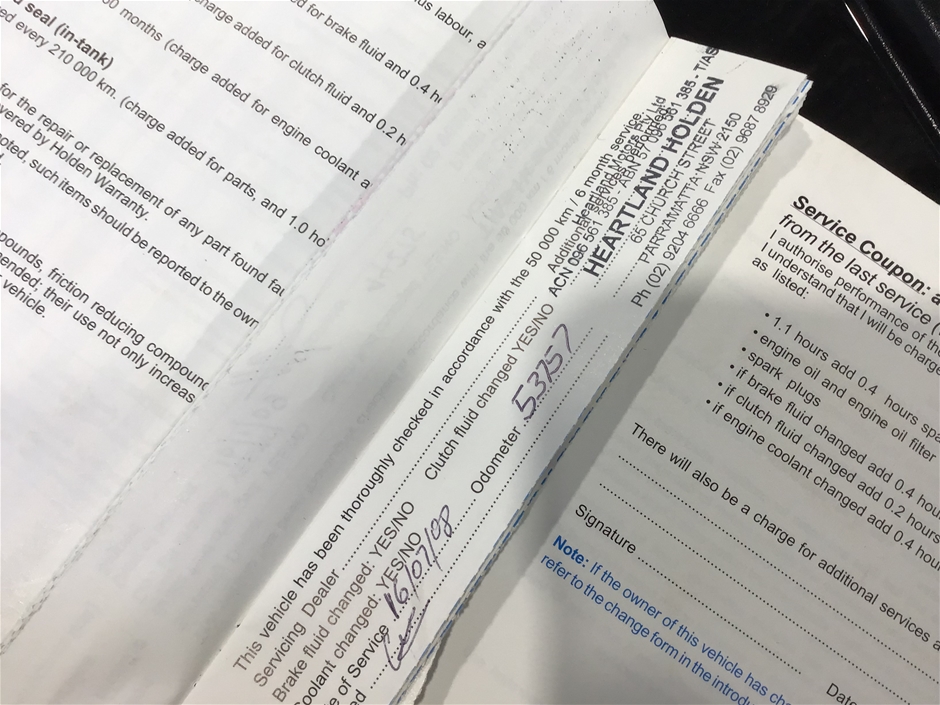 us labour, a
ed for brake fluid and 0.4 h
charge added for clutch fluid and 0.2 h
00 months (charge added for engine coolant a
d seal (in-tank)
ed every 210 000 km. (charge added for parts, and 1.0 ho
for the repair or replacement of any part found fau
overed by Holden Warranty.
noted, such items should be reported to the own
pounds, friction reducing compound
mended: their use not only increas
vehicle.
This vehicle has been thoroughly checked in accordance with the 50 000 km / 6 month service.
Servicing Dealer
Additional service work performed
Brake fluid changed: YES/NO
Clutch fluid changed YES/NO
Coolant changed: YES/NO
e of Service 16/07/08
Odometer 53757
ed
Heartland Motors Pty Ltd
ACN 096 561 385 - ABN 70 096 561 385 - T/AS
HEARTLAND HOLDEN
65 CHURCH STREET
PARRAMATTA NSW 2150
Ph (02) 9204 6666 Fax (02) 9687 8929
Service Coupon: a
from the last service (
I authorise performance of the
I understand that I will be charge
as listed:
• 1.1 hours add 0.4 hours spa
• engine oil and engine oil filter
• spark plugs
• if brake fluid changed add 0.4 hou
• if clutch fluid changed add 0.2 hours
• if engine coolant changed add 0.4 hour
There will also be a charge for additional services a
Signature
Date
Note: If the owner of this vehicle has cha
refer to the change form in the introdu